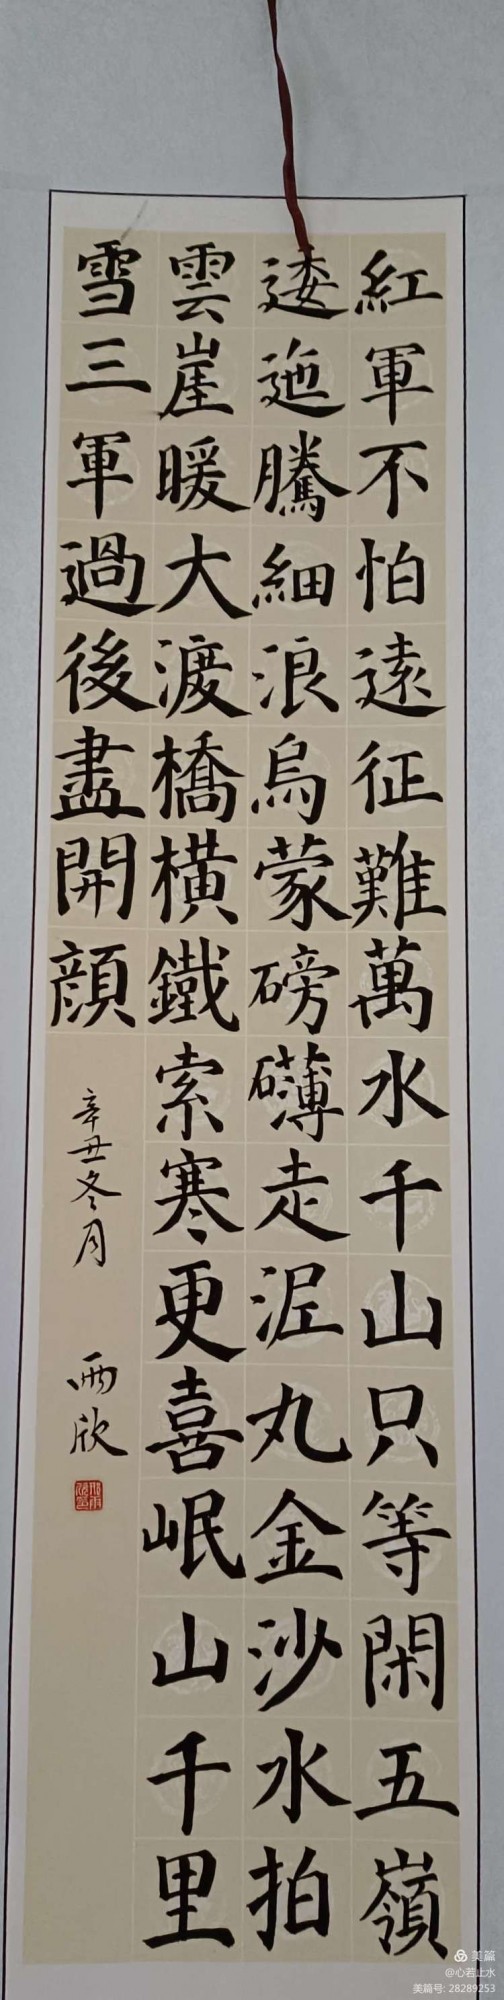 紅軍不怕遠征難萬水千山只等閑五嶺
逶迤騰細浪烏蒙磅礴走泥丸金沙水拍
雲崖暖大渡橋橫鐵索寒更喜岷山千里
雪三軍過後盡開顔
辛丑冬月
雨欣
美篇
@心若止水
美篇号: 28289253